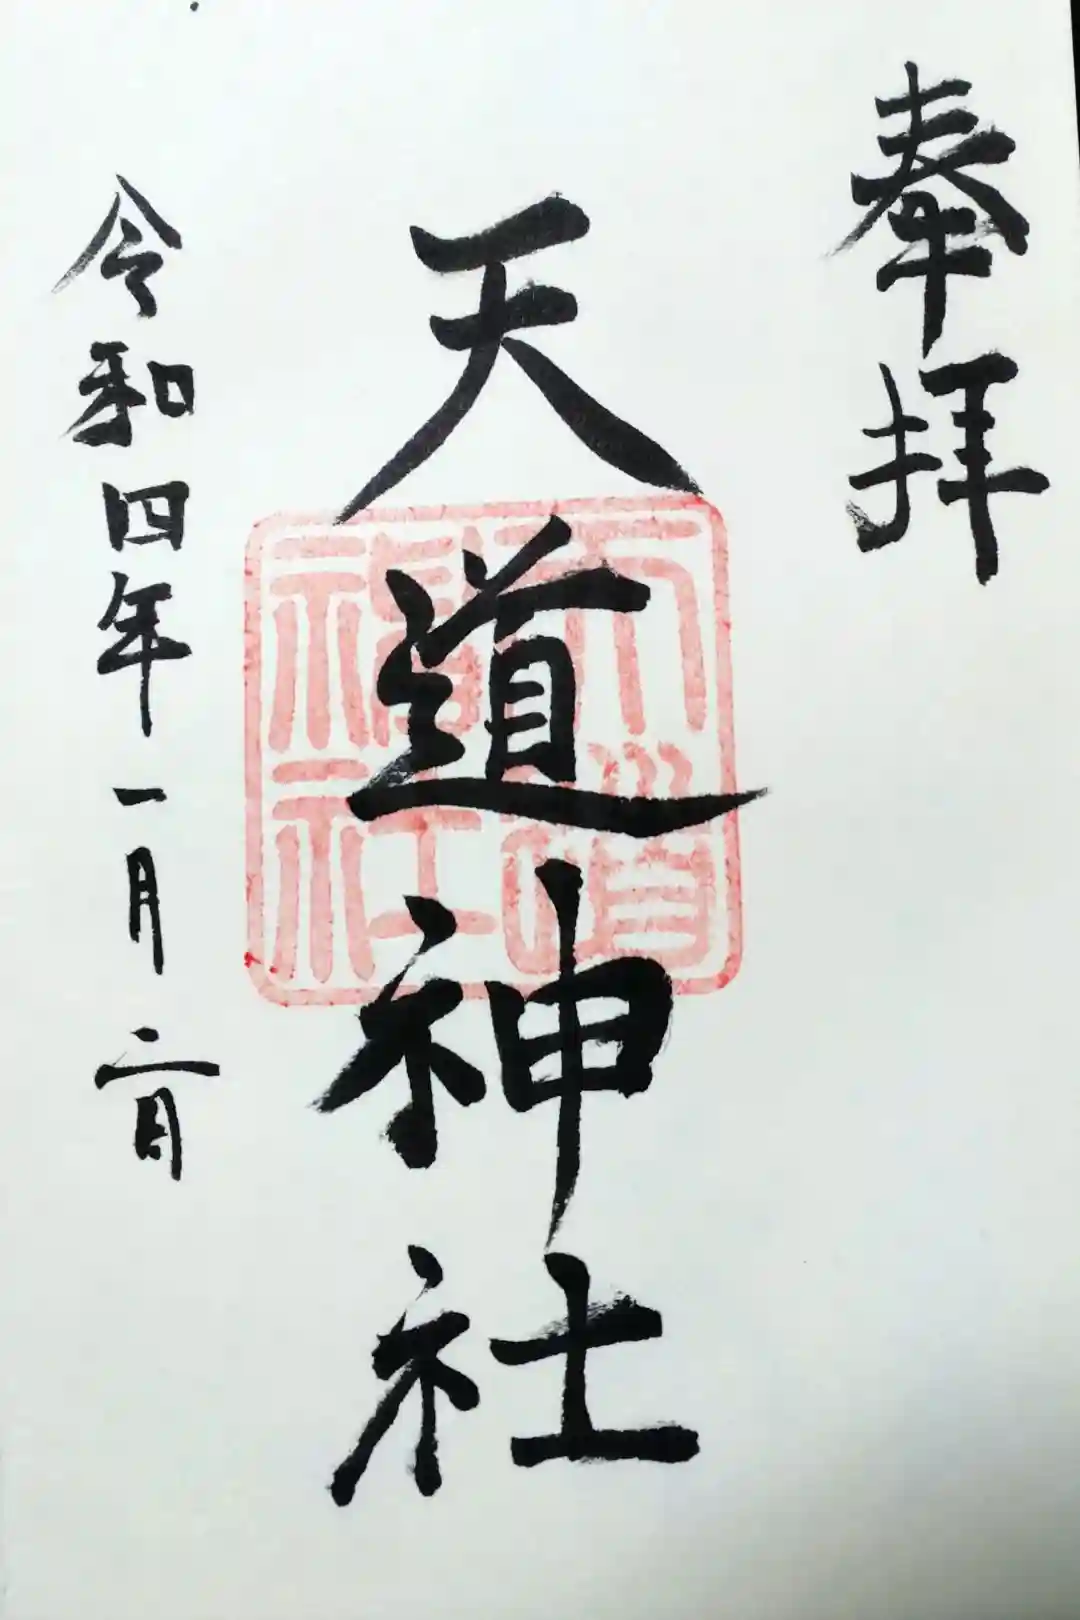 奉拝
天道神社
天道神社
令和四年一月二日